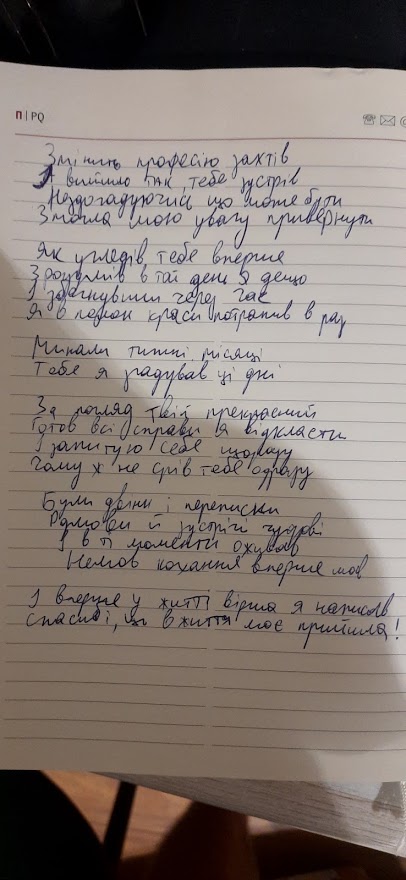 П | PQ
Змінить професію захтів
І вийшло так, тебе зустрів
Нездогадуючись що може бути
Змогла мою увагу привернути
Як угледів тебе вперше
Зрозумів в той день я дещо
І збагнувши через час
Я в полон краси потрапив в раз
Минали тижні, місяці
Тебе я згадував ці дні
За погляд твій прекрасний
Готов всі справи я відкласти
І запитую себе щоразу
Чому ж не стрів тебе одразу
Були дзвінки і переписки
Розмови й зустрічі чудові
І в ті моменти оживав
Немов кохання вперше мав
І вперше у житті вірша я написав
Спасибі, що в життя моє прийшла!